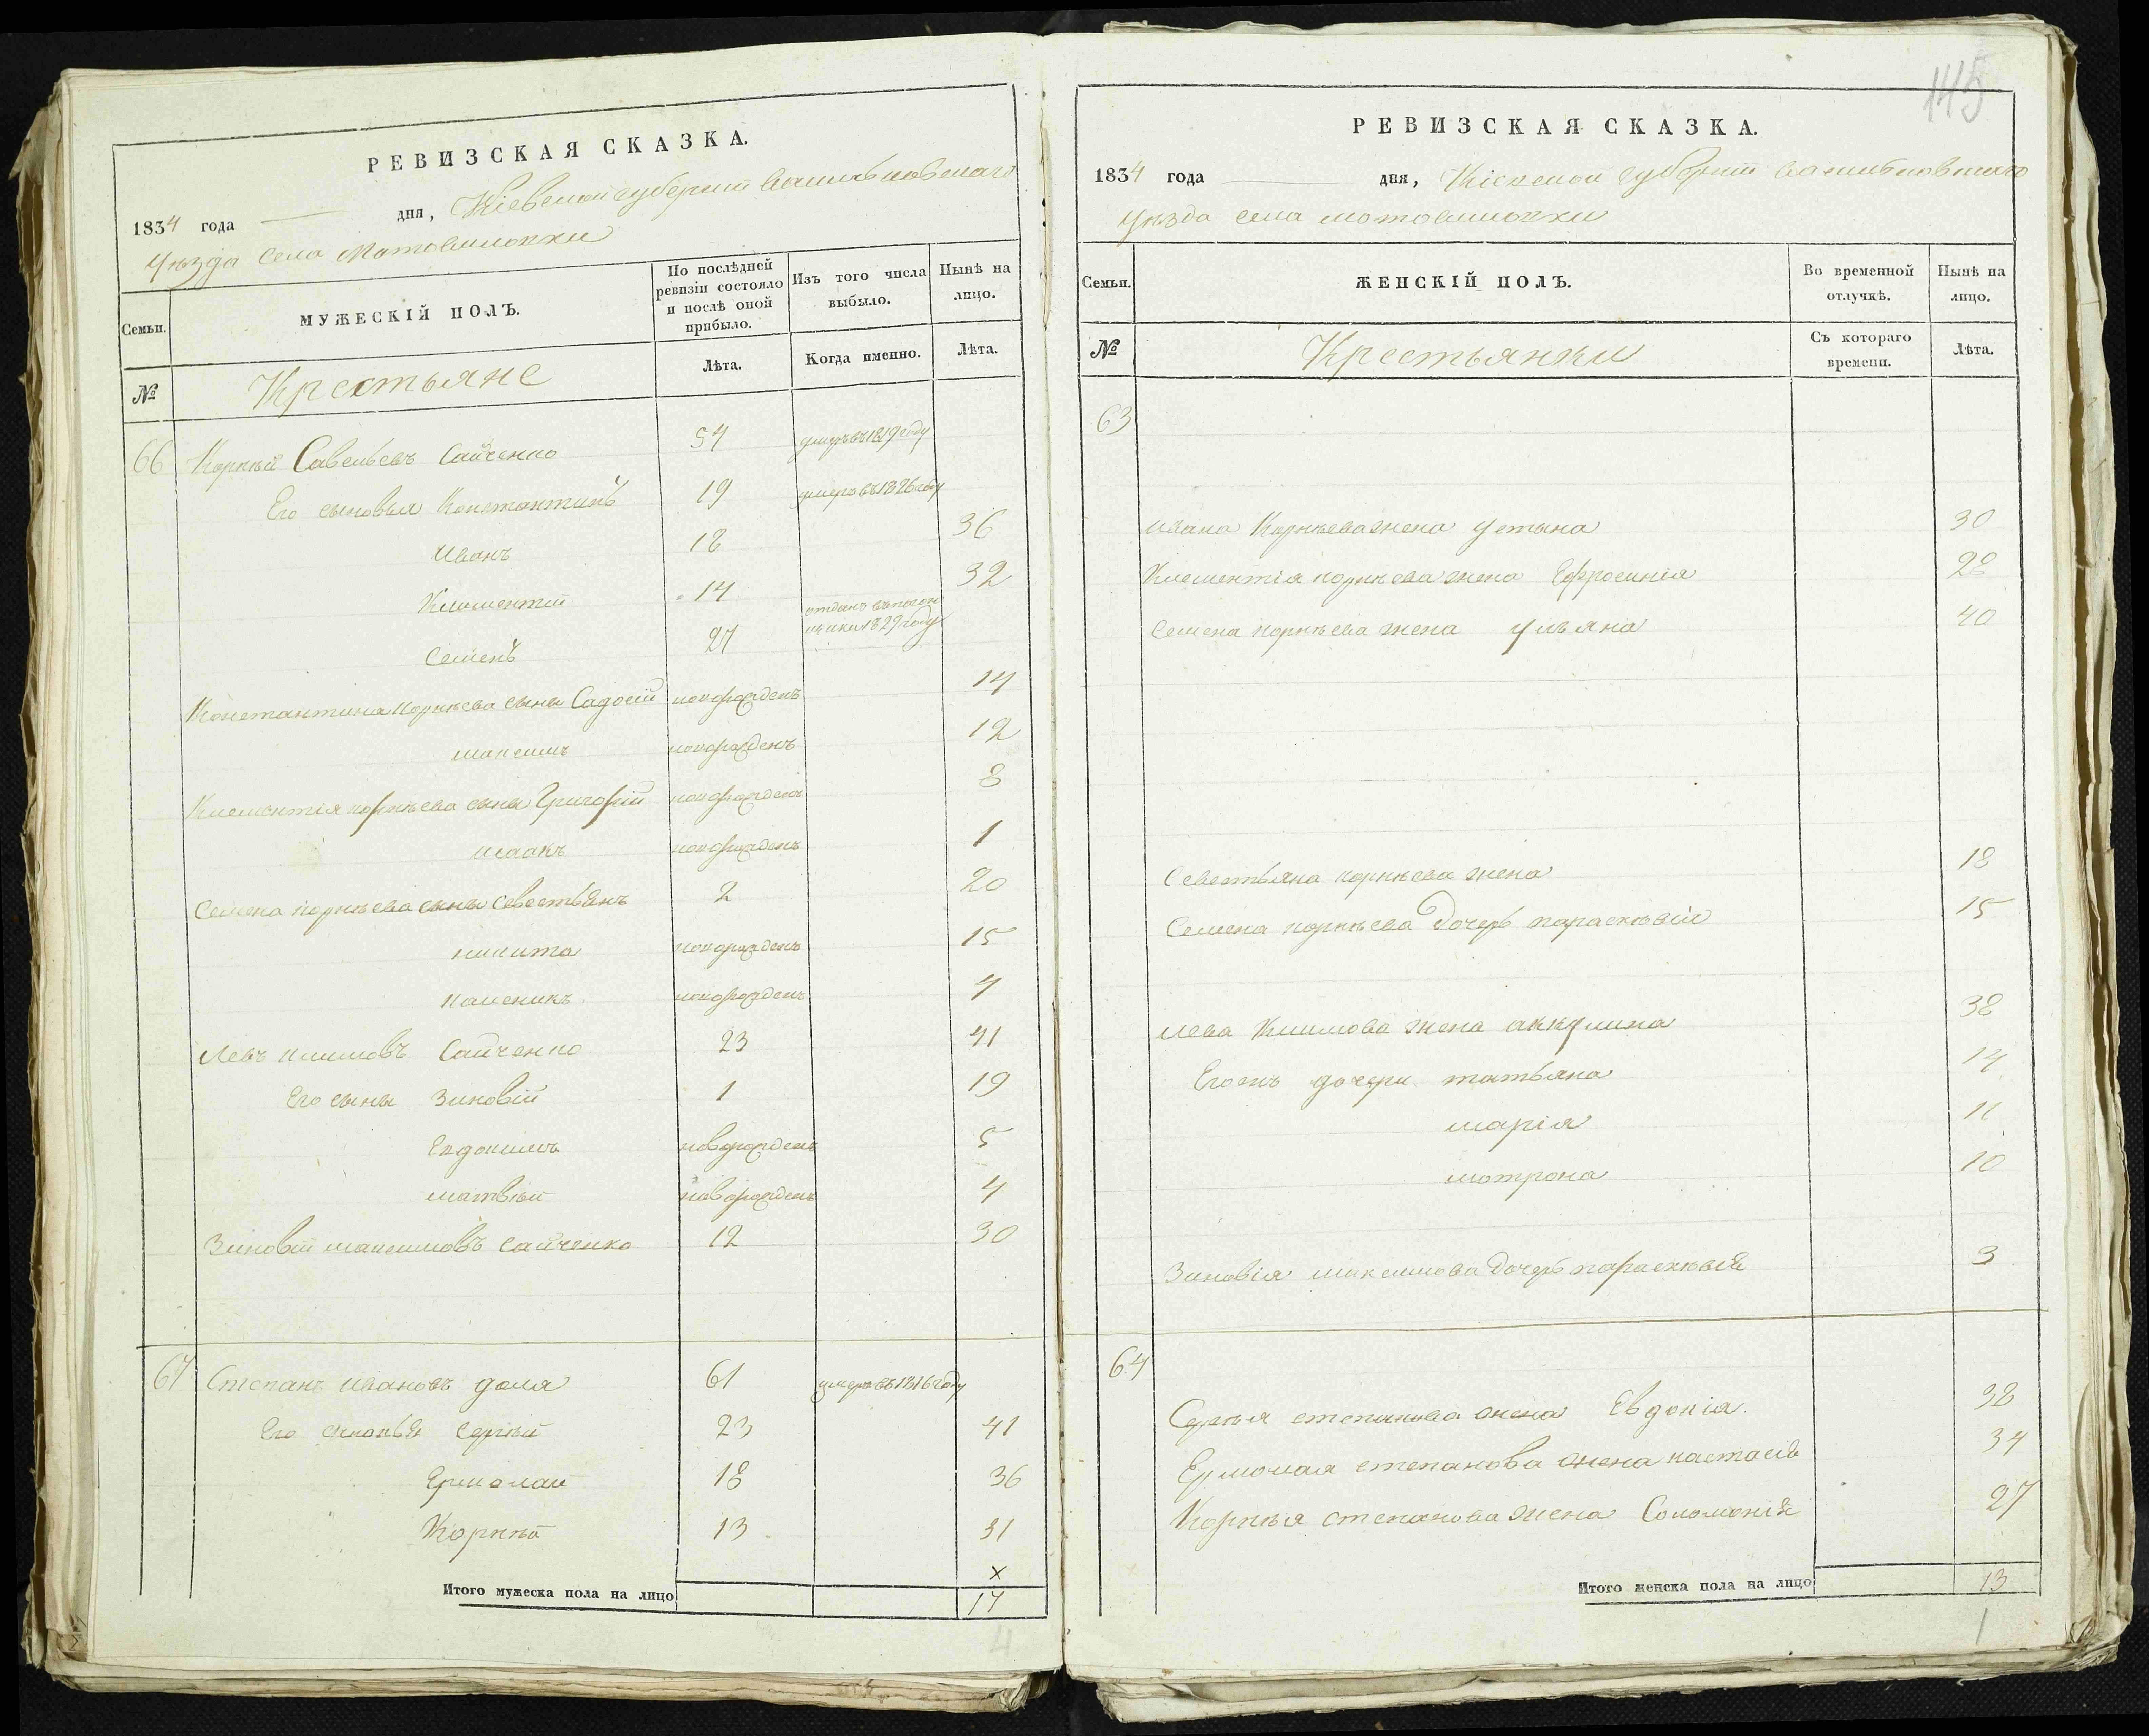 РЕВИЗСКАЯ СКАЗКА.
1834 года дня, Кіевской губерніи Васильковскаго
Уѣзда Села Мотовиловки
Семьи.
МУЖЕСКІЙ ПОЛЪ.
По послѣдней ревизіи состояло и послѣ оной прибыло.
Изъ того числа выбыло.
Нынѣ на лицо.
№
Крестьяне
Лѣта.
Когда именно.
Лѣта.
66 Корнѣй Савельевъ Сайченко 54 умеръ въ 1819 году
Его сыновья Константинъ 19 умеръ въ 1826 году
Иванъ 18 36
Климентій 14 32
Семенъ 27 отданъ въ 1829 году
Константина Корнѣева сыны Садосій новорожденъ 14
максимъ новорожденъ 12
Климентія корнѣева сыны Григорій новорожденъ 8
исаакъ новорожденъ 1
Семена корнѣева сыны Севестьянъ 2 20
никита новорожденъ 15
новорожденъ 4
Левъ климовъ Сайченко 23 41
Его сыны Зиновій 1 19
Евдокимъ новорожденъ 5
матвѣй новорожденъ 4
Зиновій максимовъ сайченко 12 30
67 Степанъ Ивановъ доля 61 умеръ въ 1816 году
Его сыновья Сергѣй 23 41
Ермолай 18 36
Корнѣй 13 31
х
Итого мужеска пола на лицо 17
4
145
РЕВИЗСКАЯ СКАЗКА.
1834 года дня, Кіевской губерніи Васильковскаго
Уѣзда села мотовиловки
Семьи.
ЖЕНСКІЙ ПОЛЪ.
Во временной отлучкѣ.
Нынѣ на лицо.
№
Крестьянки
Съ котораго времени.
Лѣта.
63
Ивана Корнѣева жена устына 30
Климентія корнѣева жена Ефросинія 28
Семена корнѣева жена ульяна 40
Севестьяна корнѣева жена 18
Семена корнѣева дочерь параскѣвія 15
Лева Климова жена аккулина 38
дочери татьяна 14
марія 11
мотрона 10
Зиновія максимова дочерь параскѣвія 3
64
Сергѣя степанова жена Евдокія. 38
Ермолая степанова жена настасія 34
Корнѣя степанова жена Соломонія 27
Итого женска пола на лицо 13
1